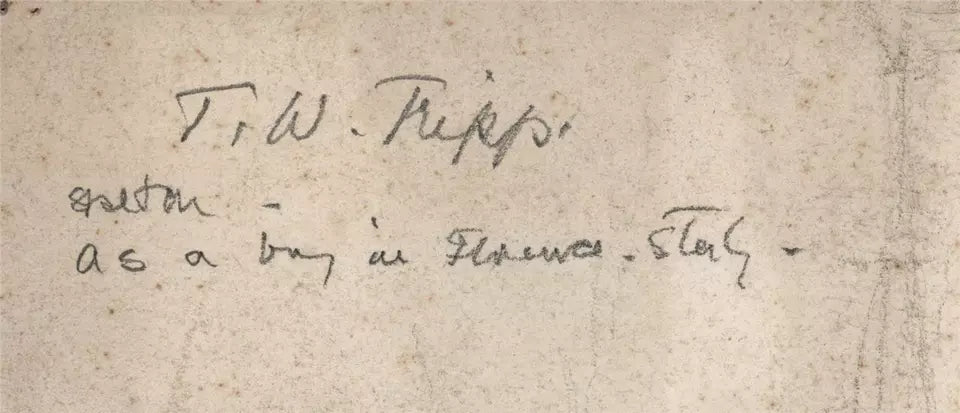 T. W. Tripp.
as a boy in Florence - Italy -